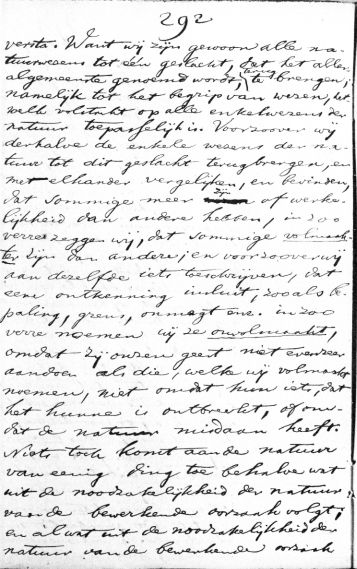 292
versta. Want wij zijn gewoon alle na-
tuurwezens tot één geslacht, dat het aller-
algemeenste genoemd wordt, terug te brengen;
namelijk tot het begrip van wezen, het-
welk volstrekt op alle enkelwezens der
natuur toepasselijk is. Voorzoover wij
derhalve de enkele wezens der na-
tuur tot dit geslacht terugbrengen, en
met elkander vergelijken, en bevinden,
dat sommige meer zijn of werke-
lijkheid dan andere hebben, in zoo
verre zeggen wij, dat sommige volmaak-
ter zijn dan andere; en voorzoover wij
aan dezelfde iets toeschrijven, dat
eene ontkenning insluit, zooals be-
paling, grens, onmagt enz. in zoo
verre noemen wij ze onvolmaakt,
omdat zij onzen geest niet evenzeer
aandoen als die, welke wij volmaakt
noemen, niet omdat hun iets, dat
het hunne is ontbreekt, of om-
dat de natuur misdaan heeft.
Niets toch komt aan de natuur
van eenig ding toe behalve wat
uit de noodzakelijkheid der natuur
van de bewerkende oorzaak volgt;
en al wat uit de noodzakelijkheid der
natuur van de bewerkende oorzaak